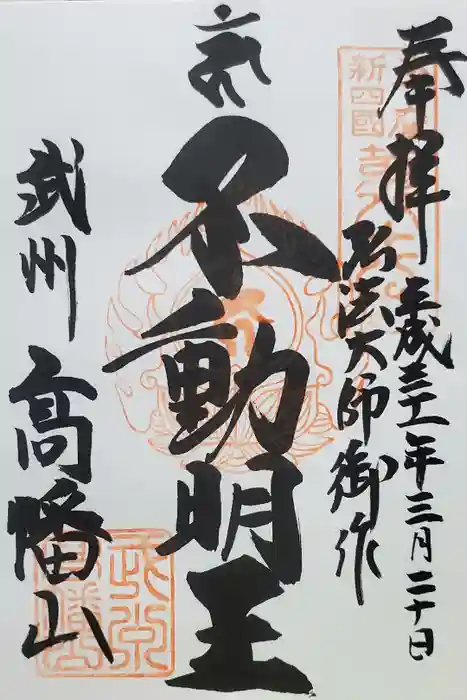 奉拝
平成三十一年三月二十日
弘法大師御作
不動明王
武州
高幡山
新四國